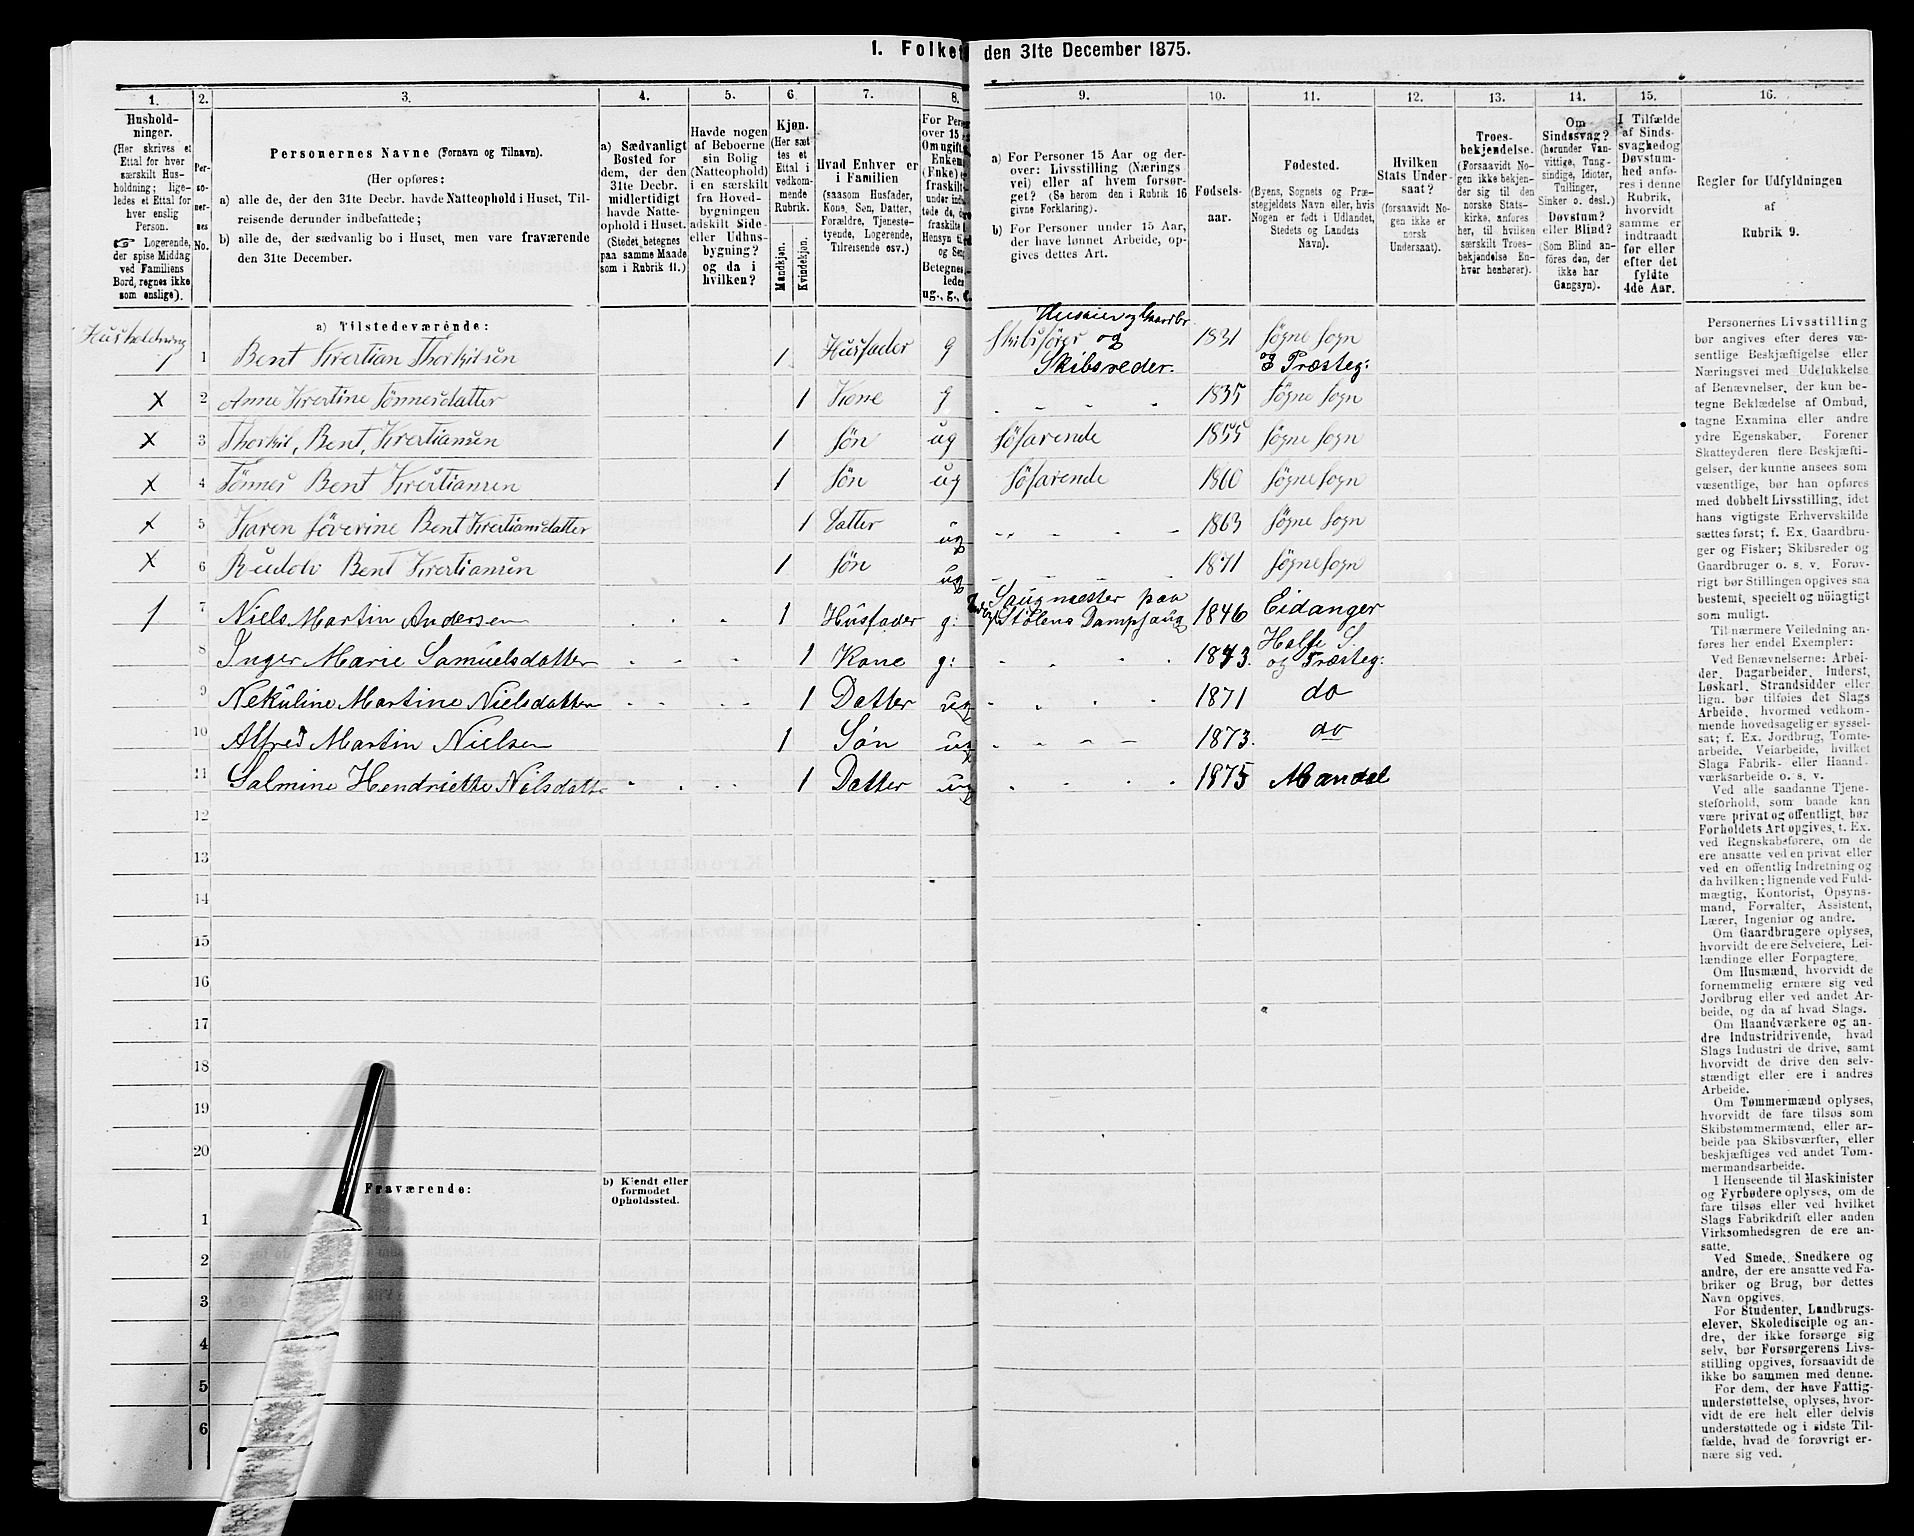 1. Folket den 31te December 1875.
1. 2. 3. 4. 5. 6. 7. 8. 9. 10. 11. 12. 13. 14. 15. 16.
Hushold-
ninger.
(Her skrives et
Ettal for hver
særskilt Hus-
holdning; lige-
ledes et Ettal for
hver enslig
Person.
Logerende,
der spise Middag
ved Familiens
Bord, regnes ikke
som enslige).
Per-
so-
ner-
nes
No.
Personernes Navne (Fornavn og Tilnavn).
(Her opføres:
a) alle de, der den 31te Decbr. havde Natteophold i Huset, Til-
reisende derunder indbefattede;
b) alle de, der sædvanlig bo i Huset, men vare fraværende
den 31te December.
a) Sædvanligt
Bosted for
dem, der den
31te Decbr.
midlertidigt
havde Natte-
ophold i Huset.
(Stedet betegnes
paa samme Maade
som i Rubrik 11.)
Havde nogen
af Beboerne
sin Bolig
(Natteophold)
i en særskilt
fra Hoved-
bygningen
adskilt Side-
eller Udhus-
bygning?
og da i
hvilken?
Kjøn.
(Her sæt-
tes et
Ettal i
vedkom-
mende
Rubrik.
Mandkjøn.
Kvindekjøn.
Hvad Enhver er
i Familien
(saasom Husfader,
Kone, Søn, Datter,
Forældre, Tjeneste-
tyende, Logerende,
Tilreisende osv.).
For Pers
over 15
Om ugift,
Enkem
(Enke) e
fraskilt
under indt
tede de,
fraskilte
Hensyn til
og Sen
Betegnes
ledes
ug., g., e
a) For Personer 15 Aar og der-
over: Livsstilling (Nærings
vei) eller af hvem forsør-
get? (Se herom den i Rubrik 16
givne Forklaring).
b) For Personer under 15 Aar,
der have lønnet Arbeide, op-
gives dettes Art.
Fødsels-
aar.
Fødested.
(Byens, Sognets og Præ-
stegjeldets Navn eller, hvis
Nogen er født i Udlandet,
Stedets og Landets
Navn).
Hvilken
Stats Under-
saat?
(forsaavidt No-
gen ikke er
norsk
Undersaat).
Troes-
bekjendelse.
(Forsaavidt No-
gen ikke bekjen-
der sig til den
norske Stats-
kirke, anføres
her, til hvilken
særskilt Troes-
bekjendelse En-
hver henhører).
Om
Sindssvag?
(herunder Van-
vittige, Tung-
sindige, Idioter,
Tullinger,
Sinker o. desl.)
Døvstum?
eller Blind?
(Som Blind an-
føres den, der
ikke har
Gangsyn).
I Tilfælde
af Sinds-
svaghed og
Døvstum-
hed anfø-
res i denne
Rubrik,
hvorvidt
samme er
indtraadt
før eller
efter det
fyldte
4de Aar.
Regler for Udfyldningen
af
Rubrik 9.
a) Tilstedeværende:
Husholdning
Huseier og Gaardbr
1 1 Bent Krestian Thorkilsen 1 Husfader g Skibsfører og Skibsreder. 1831 Søgne Sogn og Præsteg:
x 2 Anne Krestine Tønnesdatter 1 Kone g 1835 Søgne Sogn
x 3 Thorkil, Bent, Krestiansen 1 Søn ug Søfarende 1855 Søgne Sogn
x 4 Tønnes Bent Krestiansen 1 Søn ug Søfarende 1860 Søgne Sogn
x 5 Karen Severine Bent Krestiansdatter 1 Datter ug 1863 Søgne Sogn
x 6 Rudolv Bent Krestiansen 1 Søn ug 1871 Søgne Sogn
1 7 Niels Martin Andersen 1 Husfader g: Saugmester paa Stølens Dampsaug 1846 Eidanger
8 Inger Marie Samuelsdatter 1 Kone g: 1843. Halse S. og Præsteg:
9 Nekuline Martine Nielsdatter 1 Datter ug 1871 do
10 Alfred Martin Nielsen 1 Søn ug 1873. do
11 Salmine Hendriette Nilsdatt. 1 Datter ug 1875 Mandal
12
13
14
15
16
17
18
19
20
Fraværende:
b) Kjendt eller
formodet
Opholdssted.
1
2
3
4
5
6
Personernes Livsstilling
bør angives efter deres væ-
sentlige Beskjæftigelse eller
Næringsvei med Udelukkelse
af Benævnelser, der kun be-
tegne Beklædelse af Ombud,
tagne Examina eller andre
ydre Egenskaber. Forener
Skatteyderen flere Beskjæfti-
gelser, der kunne ansees som
væsentlige, bør han opføres
med dobbelt Livsstilling, idet
hans vigtigste Erhvervskilde
sættes først; f. Ex. Gaardbru-
ger og Fisker; Skibsreder og
Gaardbruger o. s. v. Forøv-
rigt bør Stillingen opgives saa
bestemt, specielt og nøiagtigt
som muligt.
Til nærmere Veiledning an-
føres her endel Exempler:
Ved Benævnelserne: Arbei-
der, Dagarbeider, Inderst,
Løskarl, Strandsidder eller
lign. bør tilføies det Slags
Arbeide, hvormed vedkom-
mende hovedsagelig er syssel-
sat; f. Ex. Jordbrug, Tomte-
arbeide, Veiarbeide, hvilket
Slags Fabrik- eller Haand-
værksarbeide o. s. v.
Ved alle saadanne Tjene-
steforhold, som baade kan
være privat og offentligt, bør
Forholdets Art opgives, t. Ex.
ved Regnskabsførere, om de
ere ansatte ved en privat eller
ved en offentlig Indretning og
da hvilken; lignende ved Fuld-
mægtig, Kontorist, Opsyns-
mand, Forvalter, Assistent,
Lærer, Ingeniør og andre.
Om Gaardbrugere oplyses,
hvorvidt de ere Selveiere, Lei-
lændinge eller Forpagtere.
Om Husmænd, hvorvidt de
fornemmelig ernære sig ved
Jordbrug eller ved andet Ar-
beide, og da af hvad Slags.
Om Haandværkere og an-
dre Industridrivende, hvad
Slags Industri de drive, samt
hvorvidt de drive den selv-
stændigt eller ere i andres
Arbeide.
Om Tømmermænd oplyses,
hvorvidt de fare tilsøs som
Skibstømmermænd, eller ar-
beide paa Skibsværfter, eller
beskjæftiges ved andet Tøm-
mermandsarbeide.
I Henseende til Maskinister
og Fyrbødere oplyses, om de
fare tilsøs eller ved hvilket
Slags Fabrikdrift eller anden
Virksomhedsgren de ere an-
satte.
Ved Smede, Snedkere og
andre, der ere ansatte ved Fa-
briker og Brug, bør dettes
Navn opgives.
For Studenter, Landbrugs-
elever, Skoledisciple og an-
dre, der ikke forsørge sig
selv, bør Forsørgerens Livs-
stilling opgives, forsaavidt de
ikke bo sammen med denne.
For dem, der have Fattig-
understøttelse, oplyses, hvor-
vidt de ere helt eller delvis
understøttede og i sidste Til-
fælde, hvad de forøvrigt er-
nære sig ved.